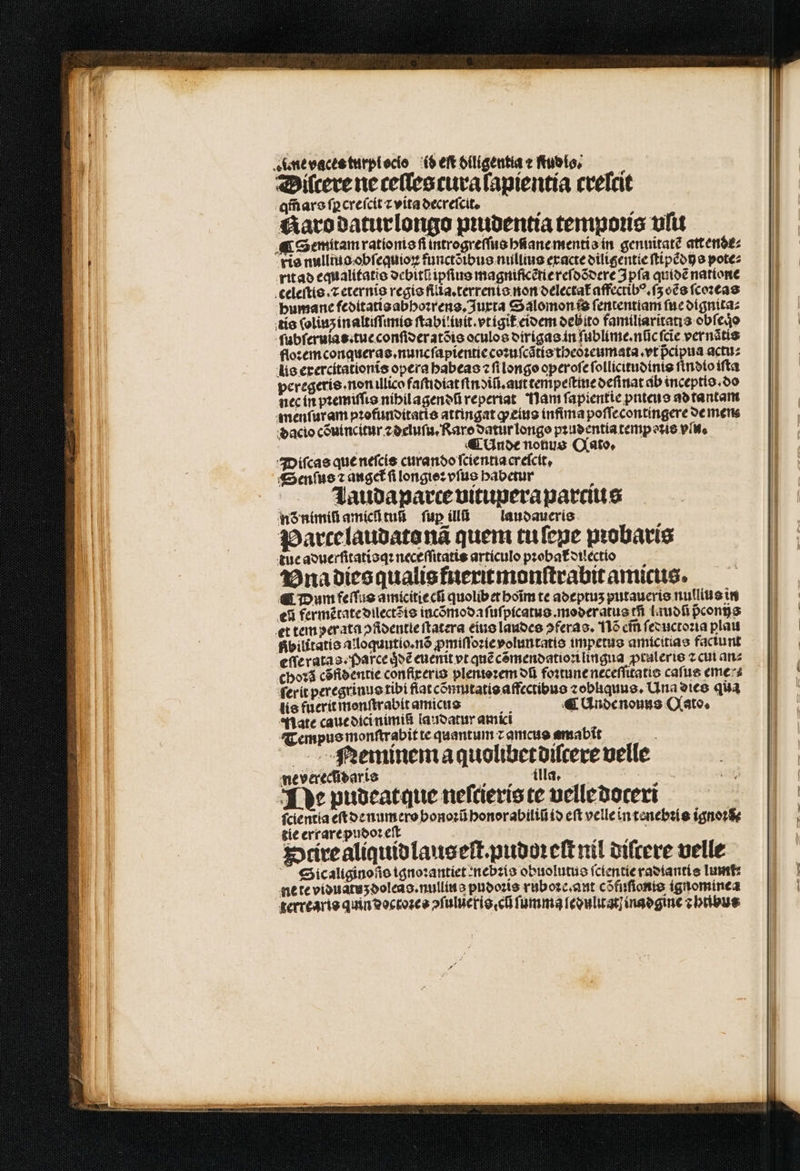 .i. ne vaces turpi ocio id est diligentia ⁊ studio.
Discere ne cesses cura sapientia crescit
qm̄ ars sꝑ crescit ⁊ vita decrescit.
Raro datur longo prudentia temporis usu
¶ Semitam rationis si introgressus hũane mentis in genuitatē attende⸗
ris nullius obsequioꝝ functõibus nullius exacte diligentie stipēdijs pote⸗
rit ad equalitatis debitũ ipsius magnificētie respõdere Ipsa quidē natione
celestis. ⁊ eternis regis filia. terrenis non delectat̃ affectibꝰ. sꝫ oēs scoreas
humane feditatis abhorrens. Juxta Salomonis sententiam sue dignita⸗
tis soliuꝫ in altissimis stabiliuit. vt igit̃ eidem debito familiaritatis obseq̇o
subseruias. tue consideratõis oculos dirigas in sublime. nũc scie vernãtis
florem conqueras. nunc sapientie coruscãtis theoreumata. vt p̃cipua actu⸗
lis exercitationis opera habeas ⁊ si longo operose sollicitudinis studio ista
peregeris. non illico fastidiat studiũ. aut tempestine desinat ab inceptis. do
nec in premissis nihil agendũ reperiat Nam sapientie puteus ad tantam
mensuram profunditatis attingat ꝙ eius infima posse contingere de mens
dacio cõuincitur ⁊ delusu. Raro datur longo prudentia temporis vsu.
¶ Unde nouus Cato.
Discas que nescis curando scientia crescit.
Sensus ⁊ auget̃ si longior vsus habetur
Lauda parce vitupera parcius
nõ nimiũ amicũ tuũ suꝑ illũ laudaueris
Parce laudato nã quem tu sepe probaris
tue aduersitatisqꝫ necessitatis articulo probat̃ dilectio
Una dies qualis fuerit monstrabit amicus.
¶ Dum fessus amicitie cũ quolibet hoīm te adeptuꝫ putaueris nullius in
eũ fermētate dilectõis incõmoda suspicatus. moderatus tñ laudũ p̃conijs
et temperata ↄfidentie statera eius laudes ↄferas. Nõ em̃ seductoria plau
sibilitatis alloquutio. nõ ꝓmissorie voluntatis impetus amicitias faciunt
esse ratas. Parce q̇dē euenit vt quē cõmendatiori lingua ꝓtuleris ⁊ cui an⸗
chorã cõfidentie confixeris pleniorem dũ fortune necessitatis casus emer⸗
serit peregrinus tibi fiat cõmutatis affectibus ⁊ obliquus. Una dies qua
lis fuerit monstrabit amicus ¶ Unde nouus Cato.
Nate caue dici nimiũ laudatur amici
Tempus monstrabit te quantum ⁊ amicus amabit
Neminem a quolibet discere velle
ne verecũdaris illa.
Ne pudeat que nescieris te velle doceri
scientia est de numero bonorũ honorabiliũ id est velle in tenebris ignorã⸗
tie errare pudor est
Scire aliquid laus est. pudor est nil discere velle
Sic aliginosis ignorantie tenebris obuolutus scientie radiantis lumi⸗
ne te viduatuꝫ doleas. nullius pudoris rubore. aut cõfusionis ignominea
terrearis quin doctores ↄsulueris. cũ summa sedulitate indagine ⁊ htibus